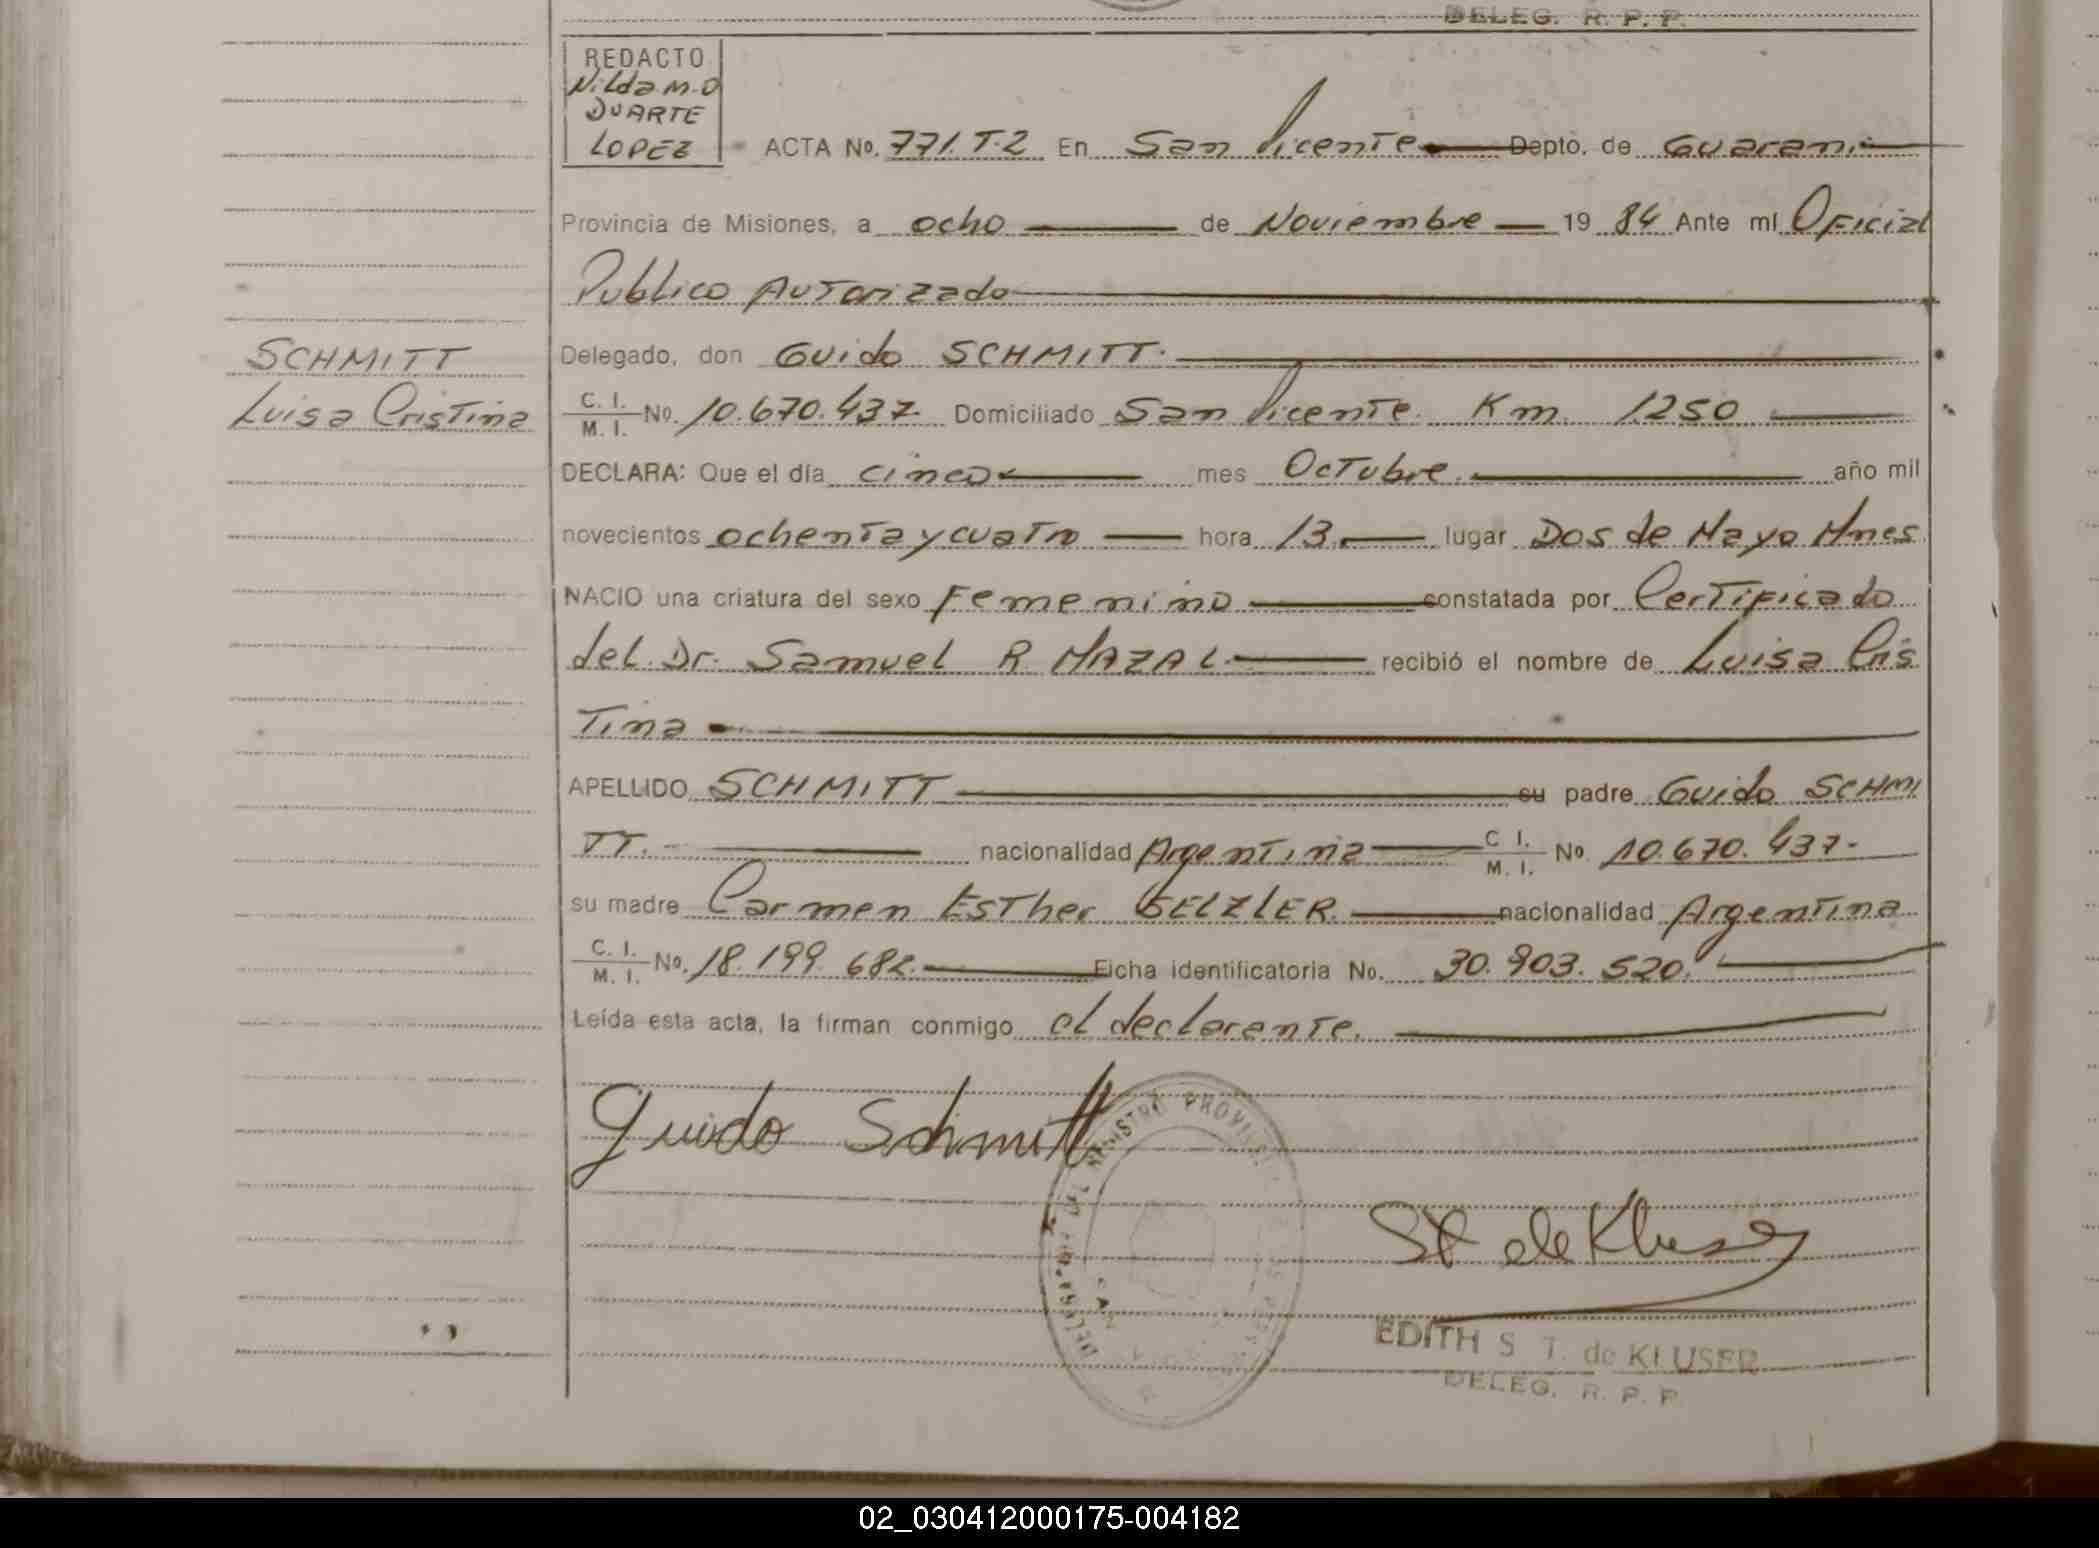 DELEG. R. P. P.
REDACTO
Nilda M. O
DUARTE
LOPEZ
ACTA No. 771. T-2 En San Vicente Depto. de Guarani
Provincia de Misiones, a ocho de Noviembre 19 84 Ante mí Oficial
Publico Autorizado
Delegado, don Guido SCHMITT.
SCHMITT
Luisa Cristina
C. I.
M. I. No. 10.670.437. Domiciliado San Vicente. Km. 1250
DECLARA: Que el día cinco mes Octubre. año mil
novecientos ochenta y cuatro hora 13. lugar Dos de Mayo Mnes
NACIO una criatura del sexo Femenino constatada por Certificado
del Dr. Samuel R. MAZAL recibió el nombre de Luisa Cris
Tina
APELLIDO SCHMITT su padre Guido SCHMI
TT. nacionalidad Argentina C. I.
M. I. No. 10.670.437.-
su madre Carmen Esther GELZLER. nacionalidad Argentina
C. I.
M. I. No. 18.199.682. Ficha identificatoria No. 30.903.520.
Leída esta acta, la firman conmigo el declarante.
Guido Schmitt
REGISTRO PROVINCIAL
de Kluser
EDITH S T. de KLUSER
DELEG. R. P. P.
02_030412000175-004182